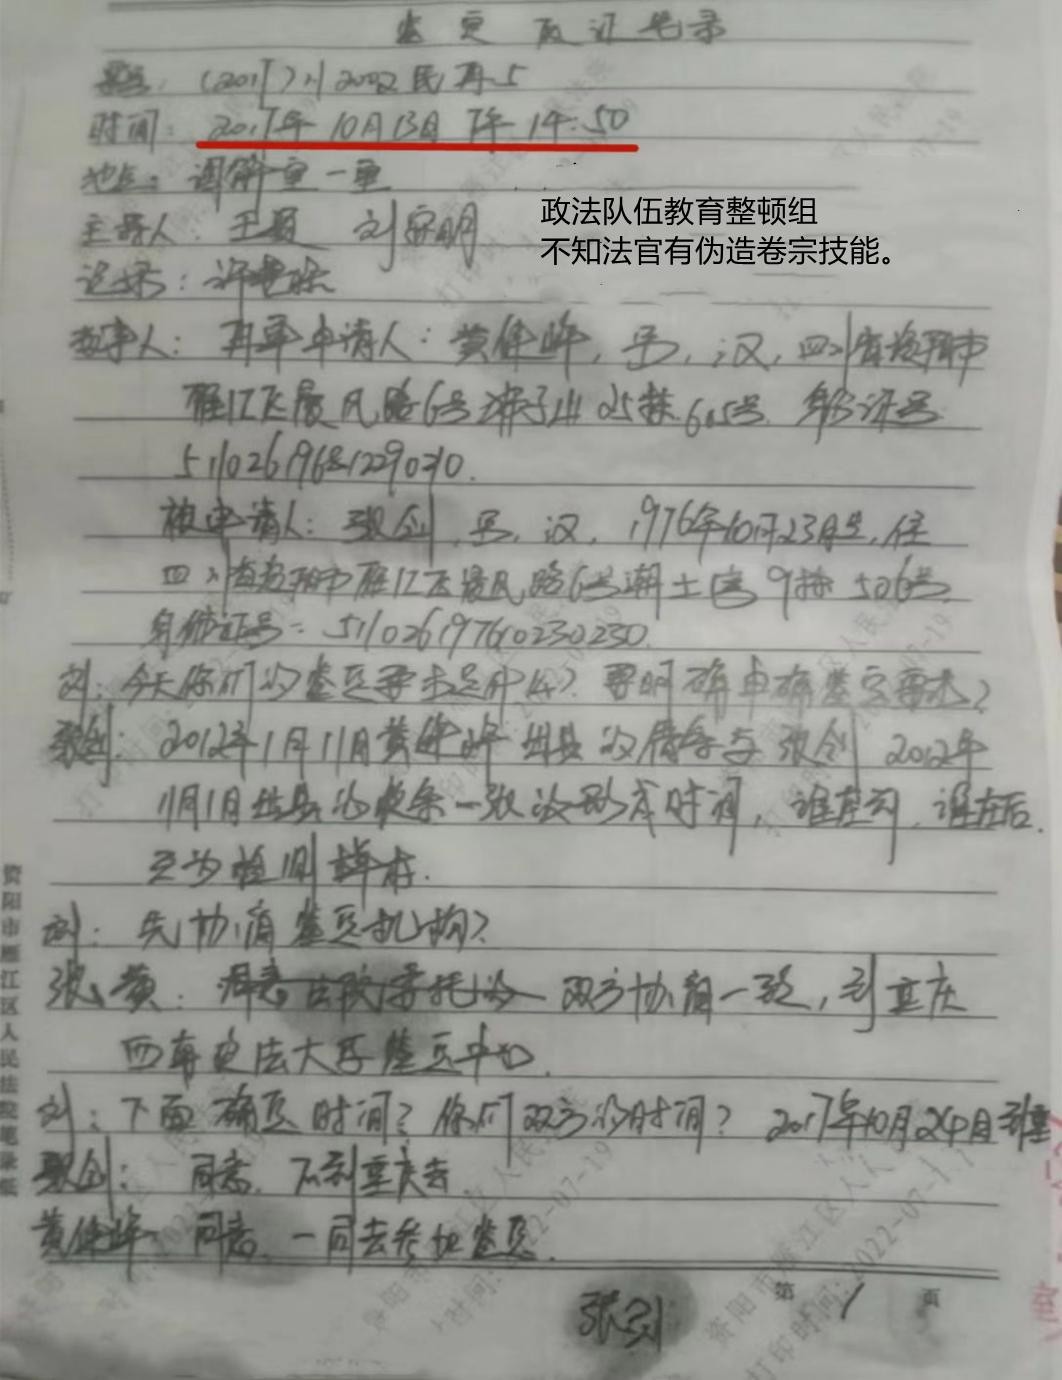 鉴定 笔录
案号：(2017)川2002民再5
时间：2017年10月13日下午14:50
地点：调解室一室
主持人：王 刘宗明
政法队伍教育整顿组
不知法官有伪造卷宗技能。
记录：
当事人：再审申请人：黄 ，男，汉，四川省资阳市
雁江区晨风路6号 25栋605号 身份证号
511026196812290310.
被申请人：张剑，男，汉，1976年10月23日生，住
四川省资阳市雁江区晨风路6号 9栋506号
身份证号：511026197610230230.
刘：今天你们的鉴定要求是什么？要明确 鉴定要求？
张剑：2012年1月11日黄 出具的借条与张剑2012年
11月1日出具的收条一张的形成时间，谁在前，谁在后.
互为检测样本.
刘：先协商鉴定机构？
张、黄：同意法院委托的 双方协商一致，到重庆
西南政法大学鉴定中心.
刘：下面确定时间？你们双方的时间？2017年10月24日到重
张剑：同意. 重庆去
黄 同意.一同去参加鉴定.
张剑
第 1 页
资阳市雁江区人民法院笔录纸
资阳市雁江区人民法院
打印时间：2022-07-19